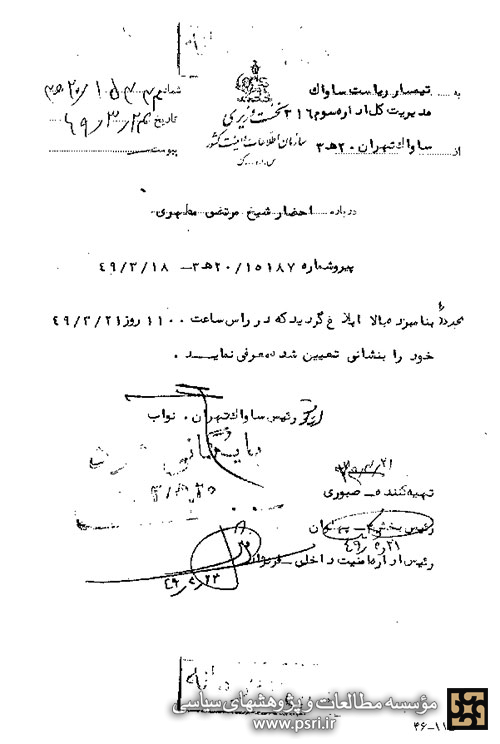 به تیمسار ریاست ساواک
مدیریت کل اداره سوم ۳۱۶
از ساواک تهران ۲۰هـ۳
نخست وزیری
سازمان اطلاعات و امنیت کشور
س.ا.و.ا.ک
شماره
تاریخ ۴۹/۳/۲۳
پیوست
درباره احضار شیخ مرتضی مطهری
پیرو شماره ۲۰/۱۵۱۸۷هـ۳ - ۴۹/۳/۱۸
مجدداً بنامبرده بالا ابلاغ گردید که در راس ساعت ۱۱۰۰ روز ۴۹/۳/۲۱
خود را بنشانی تعیین شده معرفی نماید.
رئیس ساواک تهران. نواب
بایگانی
تهیه کننده - صبوری
رئیس بخش
رئیس اداره امنیت داخلی -
مؤسسه مطالعات و پژوهشهای سیاسی
www.psri.ir